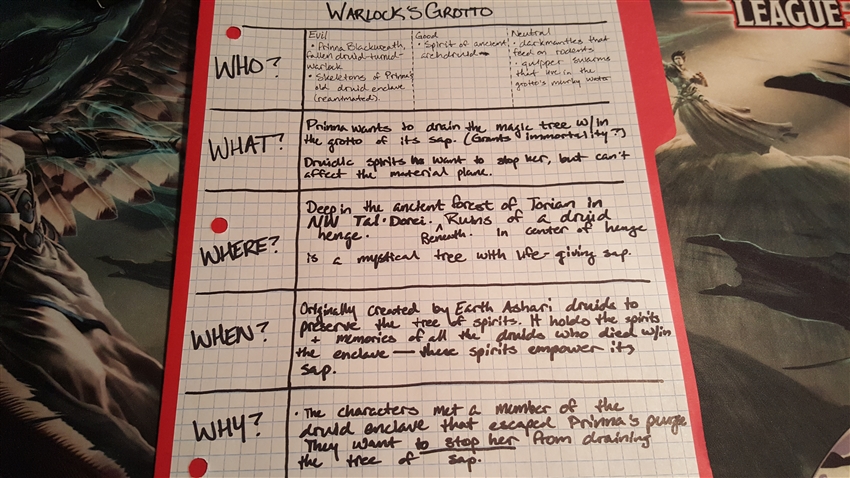 WARLOCK'S GROTTO
LEAGUE
WHO?
Evil
• Prinna Blackwreath,
fallen druid-turned-
warlock
• Skeletons of Prinna's
old druid enclave
(reanimated).
Good
• Spirit of ancient
archdruid
Neutral
• darkmantles that
feed on rodents
• quipper swarms
that live in the
grotto's murky water
WHAT?
Prinna wants to drain the magic tree w/in
the grotto of its sap. (Grants immortality?)
Druidic spirits want to stop her, but can't
affect the material plane.
WHERE?
Deep in the ancient forest of Torian in
NW Tal'Dorei. Ruins of a druid
henge. Beneath. In center of henge
is a mystical tree with life-giving sap.
WHEN?
Originally created by Earth Ashari druids to
preserve the tree of spirits. It holds the spirits
+ memories of all the druids who died w/in
the enclave — these spirits empower its
sap.
WHY?
• The characters met a member of the
druid enclave that escaped Prinna's purge
They want to stop her from draining
the tree of sap.